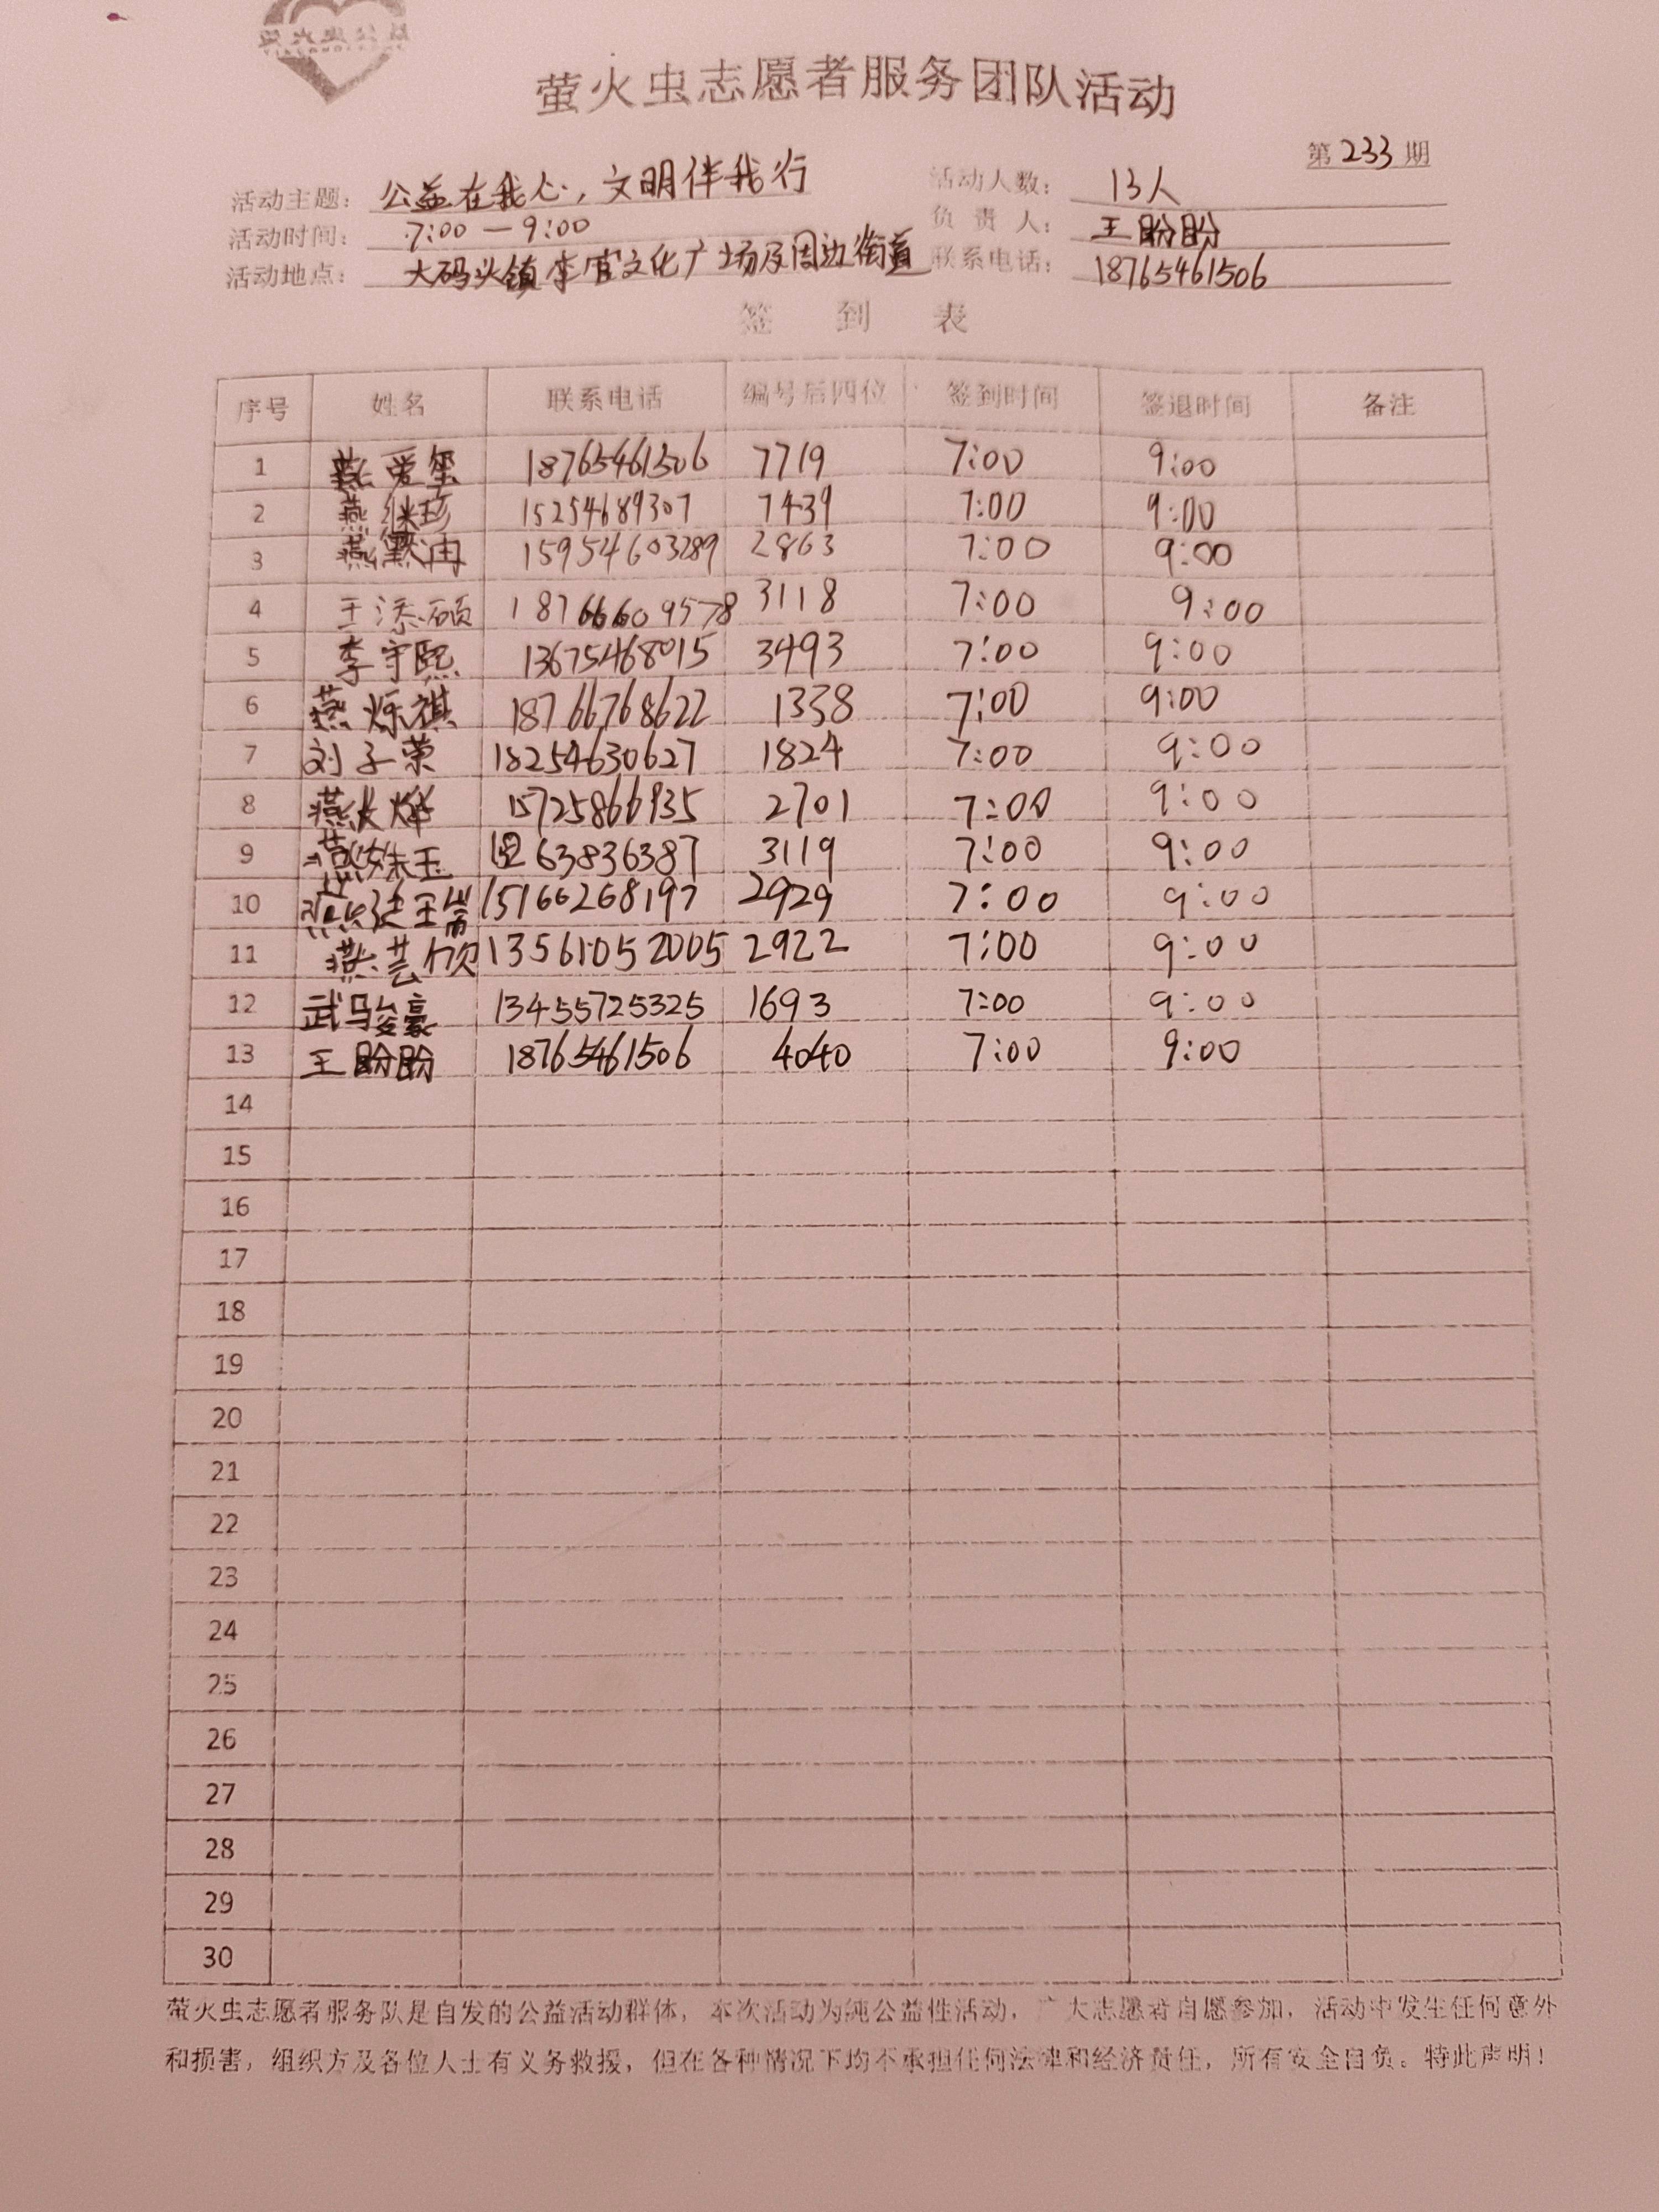 萤火虫公益
萤火虫志愿者服务团队活动
第233期
活动主题：公益在我心，文明伴我行 活动人数：13人
活动时间：7:00－9:00 负责人：王盼盼
活动地点：大码头镇李官文化广场及周边街道 联系电话：18765461506
签到表
序号 姓名 联系电话 编号后四位 签到时间 签退时间 备注
1 燕爱玺 18765461506 7719 7:00 9:00
2 燕继珍 15254689307 7439 7:00 9:00
3 燕 15954603289 2863 7:00 9:00
4 王添硕 18766609578 3118 7:00 9:00
5 李宇熙 13675468015 3493 7:00 9:00
6 燕烁祺 18766768622 1338 7:00 9:00
7 刘子荣 18254630627 1824 7:00 9:00
8 燕 15725866935 2701 7:00 9:00
9 燕姝玉 63836387 3119 7:00 9:00
10 燕 15166268197 2929 7:00 9:00
11 燕芸欣 13561052005 2922 7:00 9:00
12 武骏豪 13455725325 1693 7:00 9:00
13 王盼盼 18765461506 4040 7:00 9:00
14
15
16
17
18
19
20
21
22
23
24
25
26
27
28
29
30
萤火虫志愿者服务队是自发的公益活动群体，本次活动为纯公益性活动，广大志愿者自愿参加，活动中发生任何意外
和损害，组织方及各位人士有义务救援，但在各种情况下均不承担任何法律和经济责任，所有安全自负。特此声明！